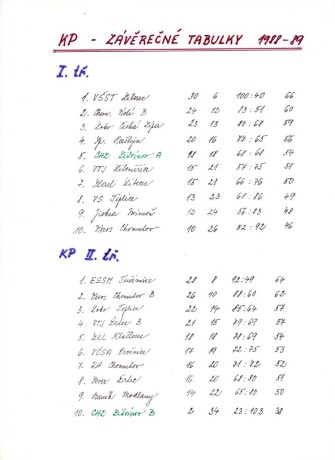 KP - ZÁVĚREČNÉ TABULKY 1988-89
I. tř.
1. VŠST Liberec 30 6 100:40 66
2. Chem. B 24 12 83:51 60
3. Loko Česká Lípa 23 13 80:68 59
4. 20 16 74:65 56
5. CHZ Litvínov A 18 18 68:68 54
6. VTJ Litoměřice 15 21 54:75 51
7. Liberec 15 21 66:76 50
8. VS Teplice 13 23 61:86 49
9. Jiskra Mimoň 12 24 56:83 48
10. Meros Chomutov 10 26 52:92 46
KP II. tř.
1. ESSM 28 8 92:49 64
2. Meros Chomutov B 26 10 88:60 62
3. Loko Teplice 22 14 85:64 57
4. VTJ B 21 15 79:69 57
5. Klášterec 18 18 78:69 54
6. VČSA 17 19 72:75 53
7. Chomutov 16 20 71:72 52
8. 16 20 68:80 51
9. Baník Modlany 14 22 65:80 50
10. CHZ Litvínov B 2 34 23:103 38